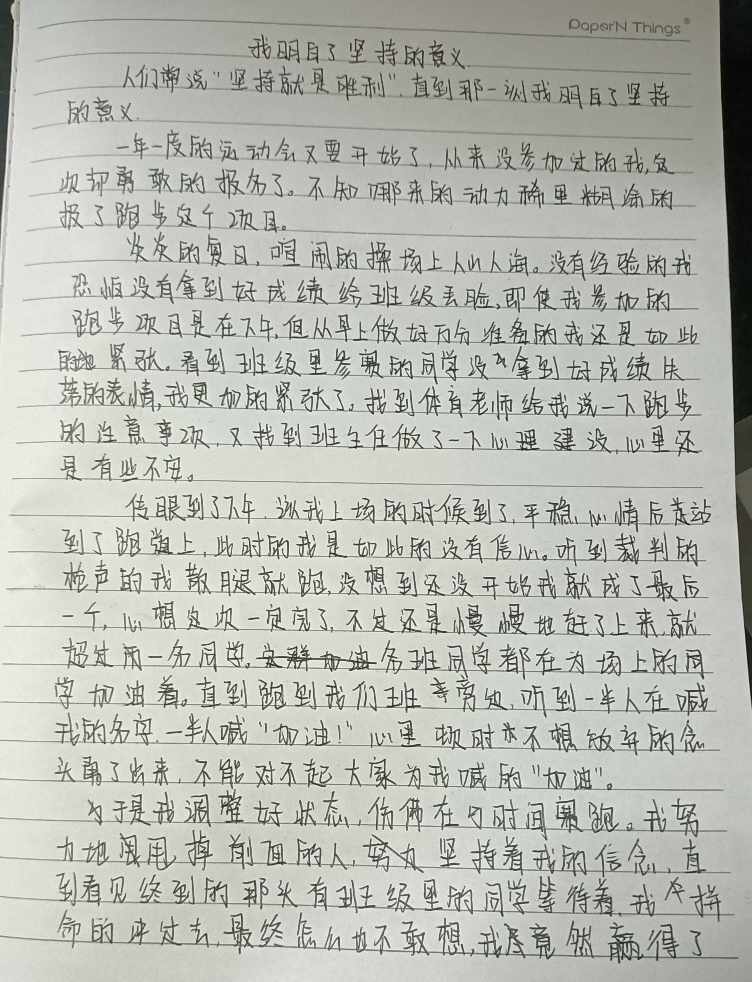 PaperN Things
我明白了坚持的意义
人们常说“坚持就是胜利”.直到那一次我明白了坚持
的意义.
一年一度的运动会又要开始了,从来没参加过的我,这
次却勇敢的报名了。不知哪来的动力稀里糊涂的
报了跑步这个项目。
炎炎的夏日,喧闹的操场上人山人海。没有经验的我
恐怕没有拿到好成绩给班级丢脸,即使我参加的
跑步项目是在下午,但从早上做好万分准备的我还是如此
紧张。看到班级里参赛的同学没有拿到好成绩失
落的表情,我更加的紧张了。找到体育老师给我说一下跑步
的注意事项,又找到班主任做了一下心理建设,心里还
是有些不安。
传眼到了下午,到我上场的时候到了,平稳心情后走站
到了跑道上,此时的我是如此的没有信心。听到裁判的
枪声的我散腿就跑,没想到还没开始我就成了最后
一个,心想这次一定完了,不过还是慢慢地赶了上来,就
超过两一名同学,各班同学都在为场上的同
学加油着。直到跑到我们班等旁处,听到一半人在喊
我的名字,一半人喊“加油!”心里顿时不想放弃的念
头冒了出来,不能对不起大家为我喊的“加油”。
于是我调整好状态,仿佛在与时间赛跑。我努
力地甩掉前面的人,坚持着我的信念,直
到看见终到的那头有班级里的同学等待着,我拼
命的冲过去,最终怎么也不敢想,我竟然赢得了